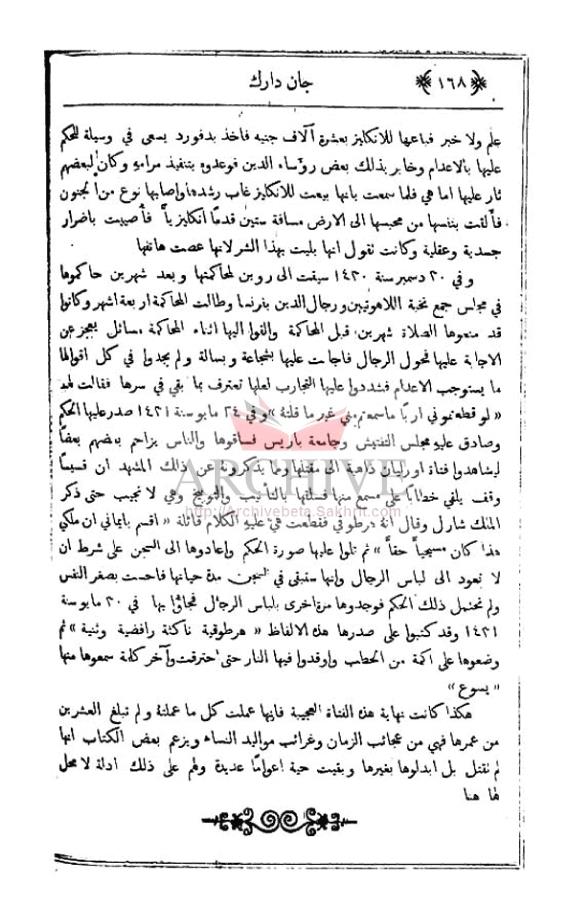 ١٦٨
جان دارك
علم ولا خبر فباعها للانكليز بعشرة آلاف جنيه فاخذ بدفورد يسعى في وسيلة للحكم
عليها بالاعدام وخابر بذلك بعض رؤساء الدين فوعدوه بتنفيذ مرامه وكان لبعضهم
ثار عليها اما هي فلما سمعت بانها بيعت للانكليز غاب رشدها واصابها نوع من الجنون
فألقت بنفسها من محبسها الى الارض مسافة ستين قدماً انكليزياً فأصيبت باضرار
جسدية وعقلية وكانت تقول انها بليت بهذا الشر لانها عصت هاتفها
وفي ٢٠ دسمبر سنة ١٤٣٠ سيقت الى روين لمحاكمتها وبعد شهرين حاكموها
في مجلس جمع نخبة اللاهوتيين ورجال الدين بفرنسا وطالت المحاكمة اربعة اشهر وكانوا
قد منعوها الصلاة شهرين قبل المحاكمة والقوا اليها اثناء المحاكمة مسائل يعجز عن
الاجابة عليها فحول الرجال فاجابت عليها بشجاعة وبسالة ولم يجدوا في كل اقوالها
ما يستوجب الاعدام فشددوا عليها التجارب لعلها تعترف بما بقي في سرها فقالت لهم
« لو قطعتموني اربًا ما سمعتم مني غير ما قلته » وفي ٢٤ مايو سنة ١٤٣١ صدر عليها الحكم
وصادق عليه مجلس التفتيش وجامعة باريس فساقوها والناس يزاحم بعضهم بعضًا
ليشاهدوا فتاة اورليان ذاهبة الى مقتلها ومما يذكرونه عن ذلك المشهد ان قسيسًا
وقف يلقي خطابًا على مسمع منها فسلقها بالتأنيب والتوبيخ وهي لا تجيب حتى ذكر
الملك شارل وقال انه هرطوقي فقطعت هي عليه الكلام قائلة « اقسم بايماني ان ملكي
هذا كان مسيحياً حقاً » ثم تلوا عليها صورة الحكم واعادوها الى السجن على شرط ان
لا تعود الى لباس الرجال وانها ستبقى في السجن مدة حياتها فاحست بصغر النفس
ولم تحتمل ذلك الحكم فوجدوها مرة اخرى بلباس الرجال فجاؤا بها في ٣٠ مايو سنة
١٤٣١ وقد كتبوا على صدرها هذه الالفاظ « هرطوقية ناكثة رافضية وثنية » ثم
وضعوها على اكمة من الحطب واوقدوا فيها النار حتى احترقت وآخر كلمة سمعوها منها
« يسوع »
هكذا كانت نهاية هذه الفتاة العجيبة فانها عملت كل ما عملته ولم تبلغ العشرين
من عمرها فهي من عجائب الزمان وغرائب مواليد النساء ويزعم بعض الكتاب انها
لم تقتل بل ابدلوها بغيرها وبقيت حية اعوامًا عديدة ولهم على ذلك ادلة لا محل
لها هنا
ARCHIVE
http://Archivebeta.Sakhrit.com